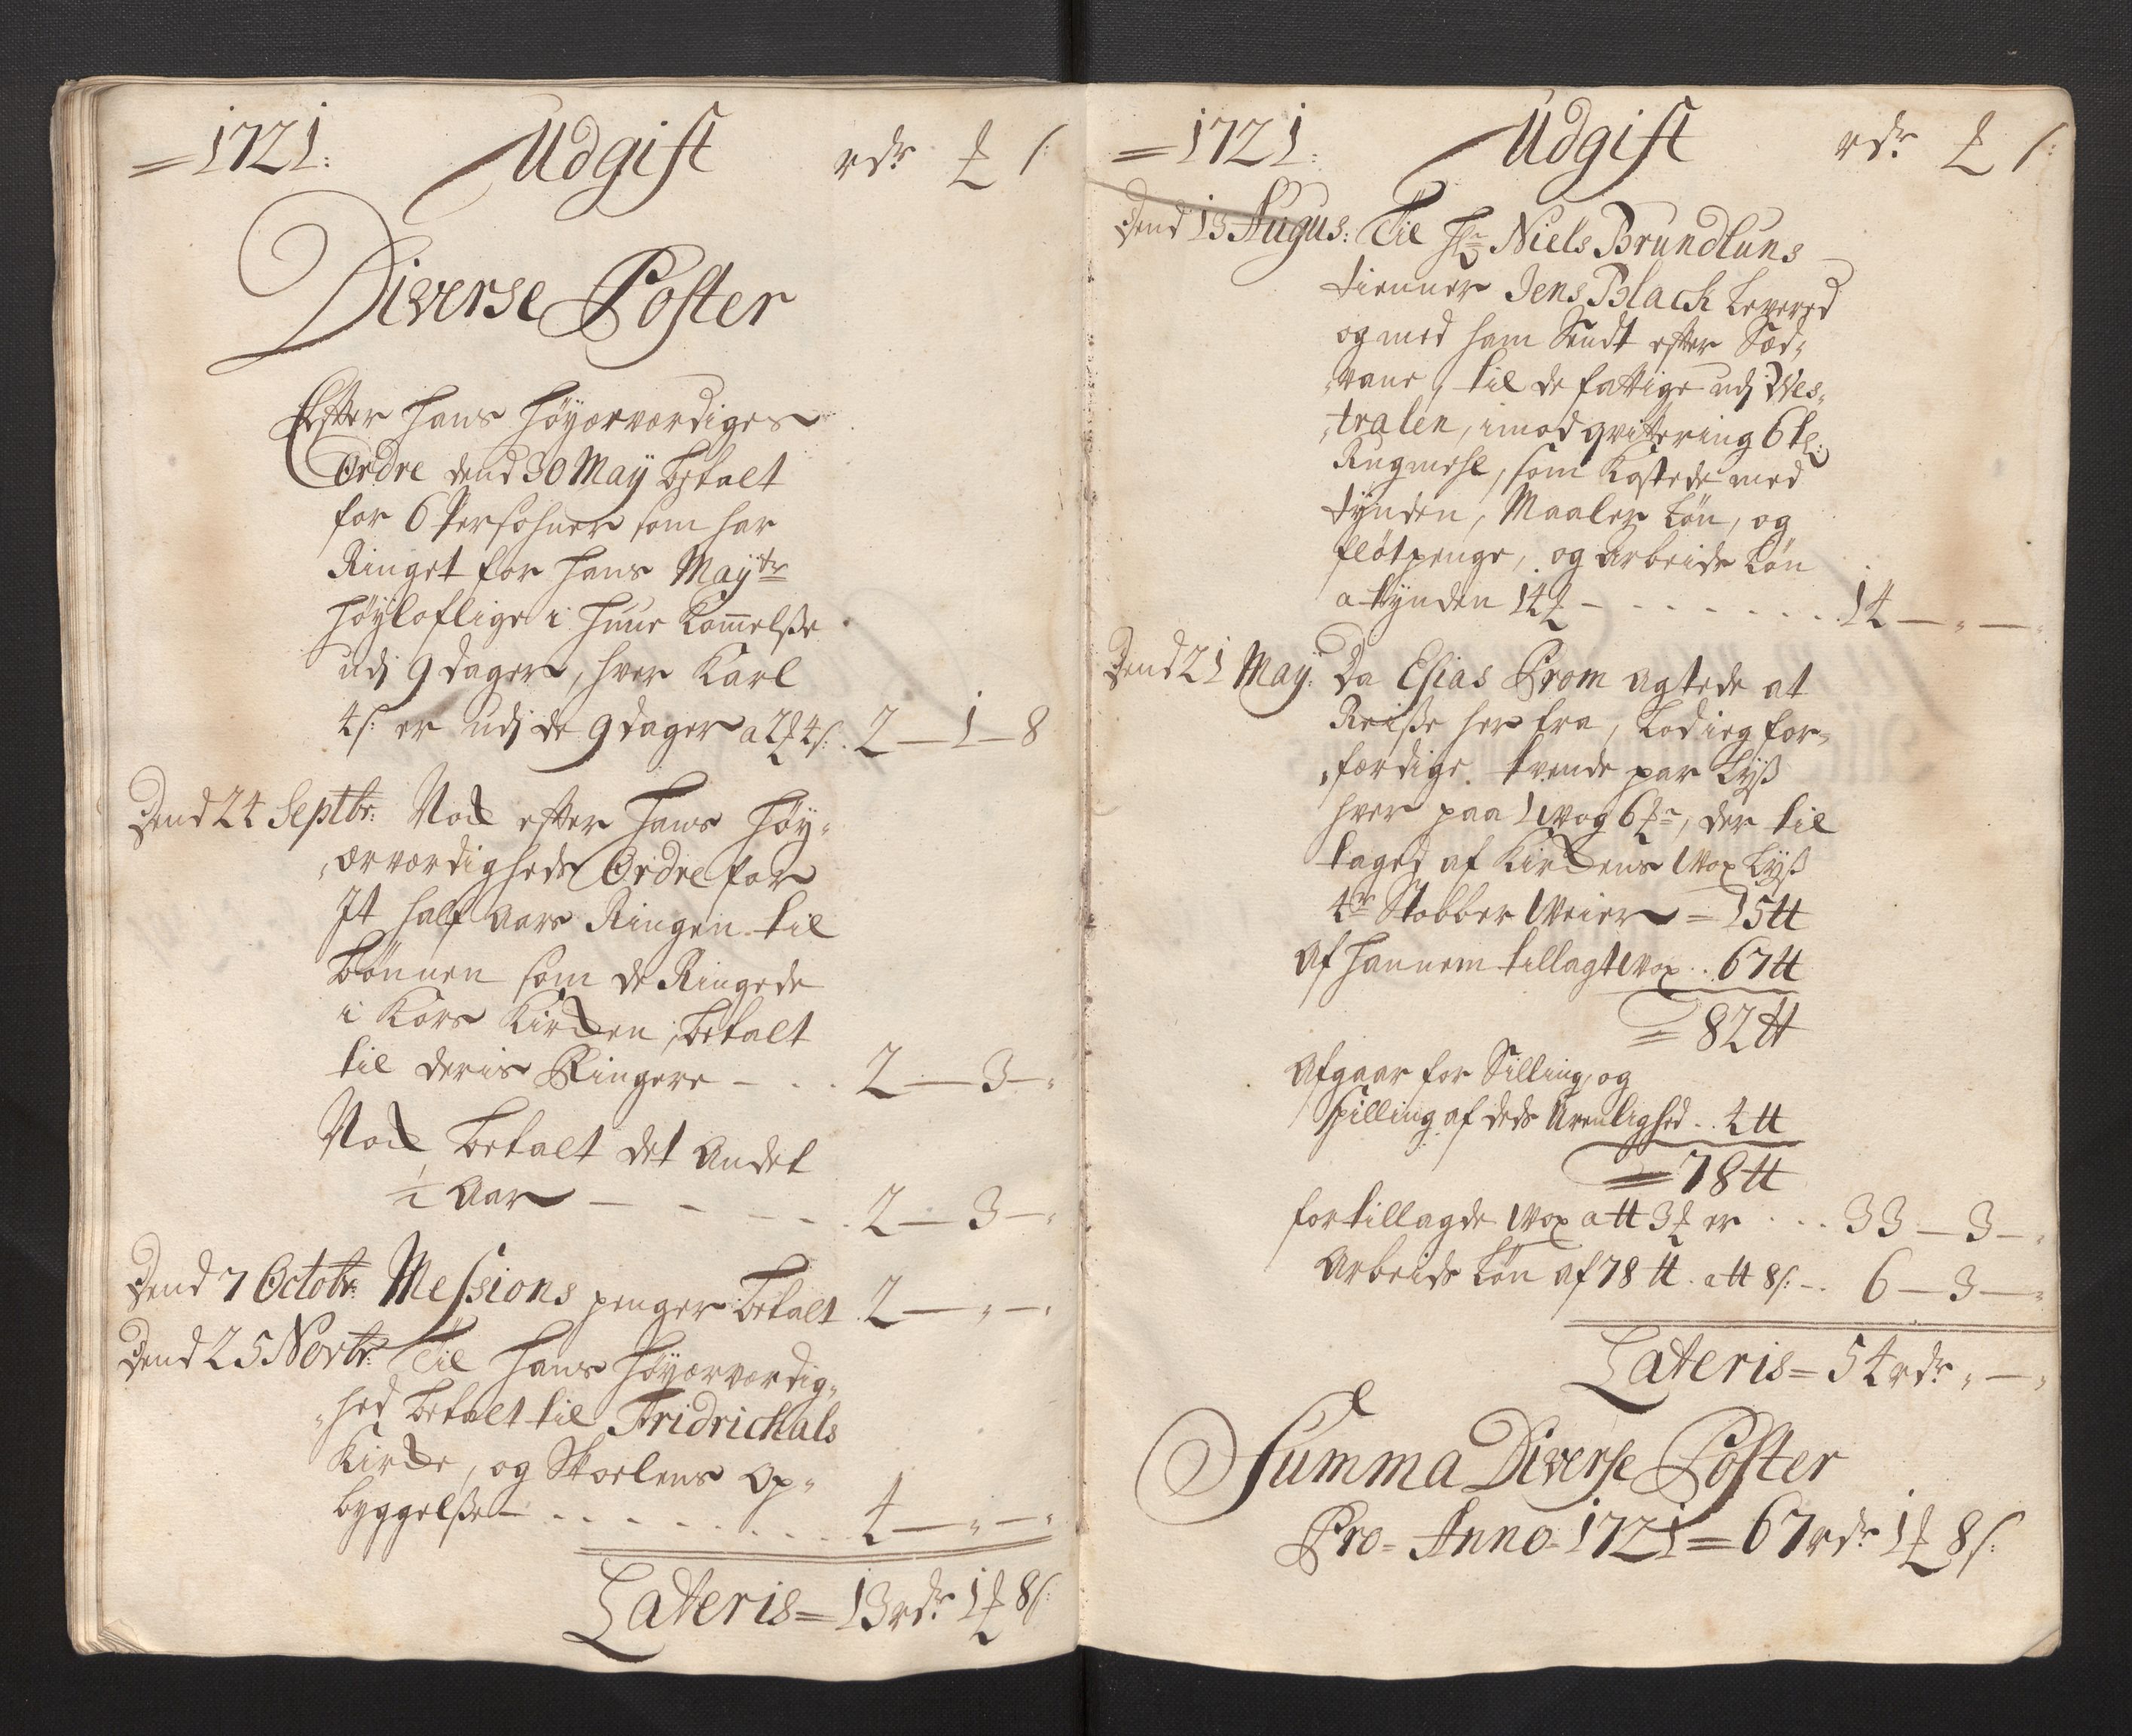 =1721. Udgift rdr ₰ ſ:
Diverse Poster
Efter Hans Høyærværdiges
Ordre dend 30 Maÿ betalt
for 6 Persohner som har
Ringet for Hans Mayts
Høyloflige i Kommelße
udj 9 dager, hver Karl
4 ſ: er udj de 9 dager a 2 ₰ 4 ſ: . 2 — 1 — 8
Dend 24 Septbr: Nock efter Hans Høy-
ærværdigheds Ordre for
It half Aars Ringen til
Bønnen som de Ringede
i Kors Kircken, betalt
til deris Ringere - . . . 2 — 3 — "
Nock betalt det Andet
½ Aar — - - - - . 2 — 3 — "
Dend 7 Octobr: Messions penger betalt 2 — " — "
Dend 25 Novbr: Til Hans Høyærværdig-
hed betalt til Fridrichals
Kircke, og Skoelens Op-
byggelße - . . . . . . . . . 4 — " — "
Lateris = 13 rdr 1 ₰ 8 ſ:
=1721. Udgift rdr ₰ ſ:
Dend 13 Augus: Til Hr Niels Brundluns
tienner Jens Black Levered
og med ham Sendt efter Sæd-
vane, til de fattige udj Wes-
tralen, imod qvittering 6 tr:
Rugmehl, som Kostede med
tynden, Maaler Løn, og
fløtpenge, og arbeids Løn
a tynden 14 ₰ - - - - - - . . 14 — " — "
Dend 21 Maÿ: Da Elias Prom agtede at
Reiße her fra, Lod ieg for-
færdige tvende par Lyß
hver paa 1 Wog 6 ₰r, der til
taged af Kirckens Wox Lyß
4re Stobber Weier = 15 ℔
Af Hannem tillagt Wox . . 67 ℔
= 82 ℔
Afgaar for Silling, og
spilling af deds Urenlighed . . 4 ℔
= 78 ℔
for tillagde Wox a ℔ 3 ₰ er . . . 33 — 3 — "
Arbeids Løn af 78 ℔ . a ℔ 8 ſ: - . 6 — 3 — "
Lateris = 54 rdr " — "
Summa Diverse Poster
Pro = Anno = 1721 = 67 rdr 1 ₰ 8 ſ: